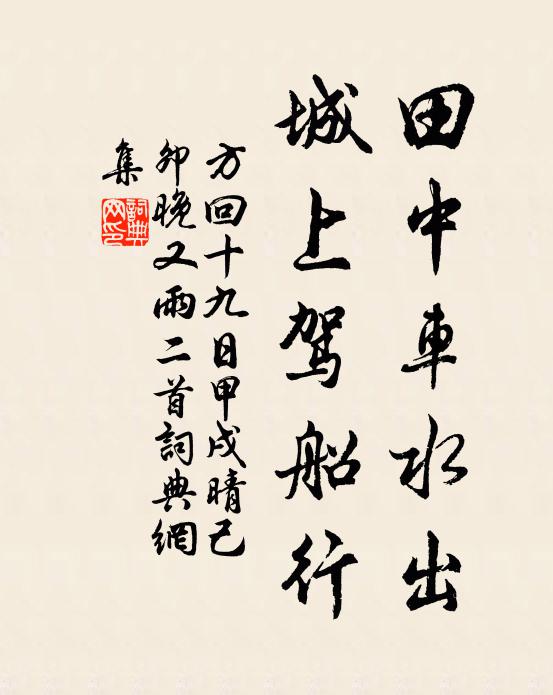 田中車水出
城上駕船行
方回十九日甲戌晴己
卯晚又雨二首詞典網
集
詞典
网印